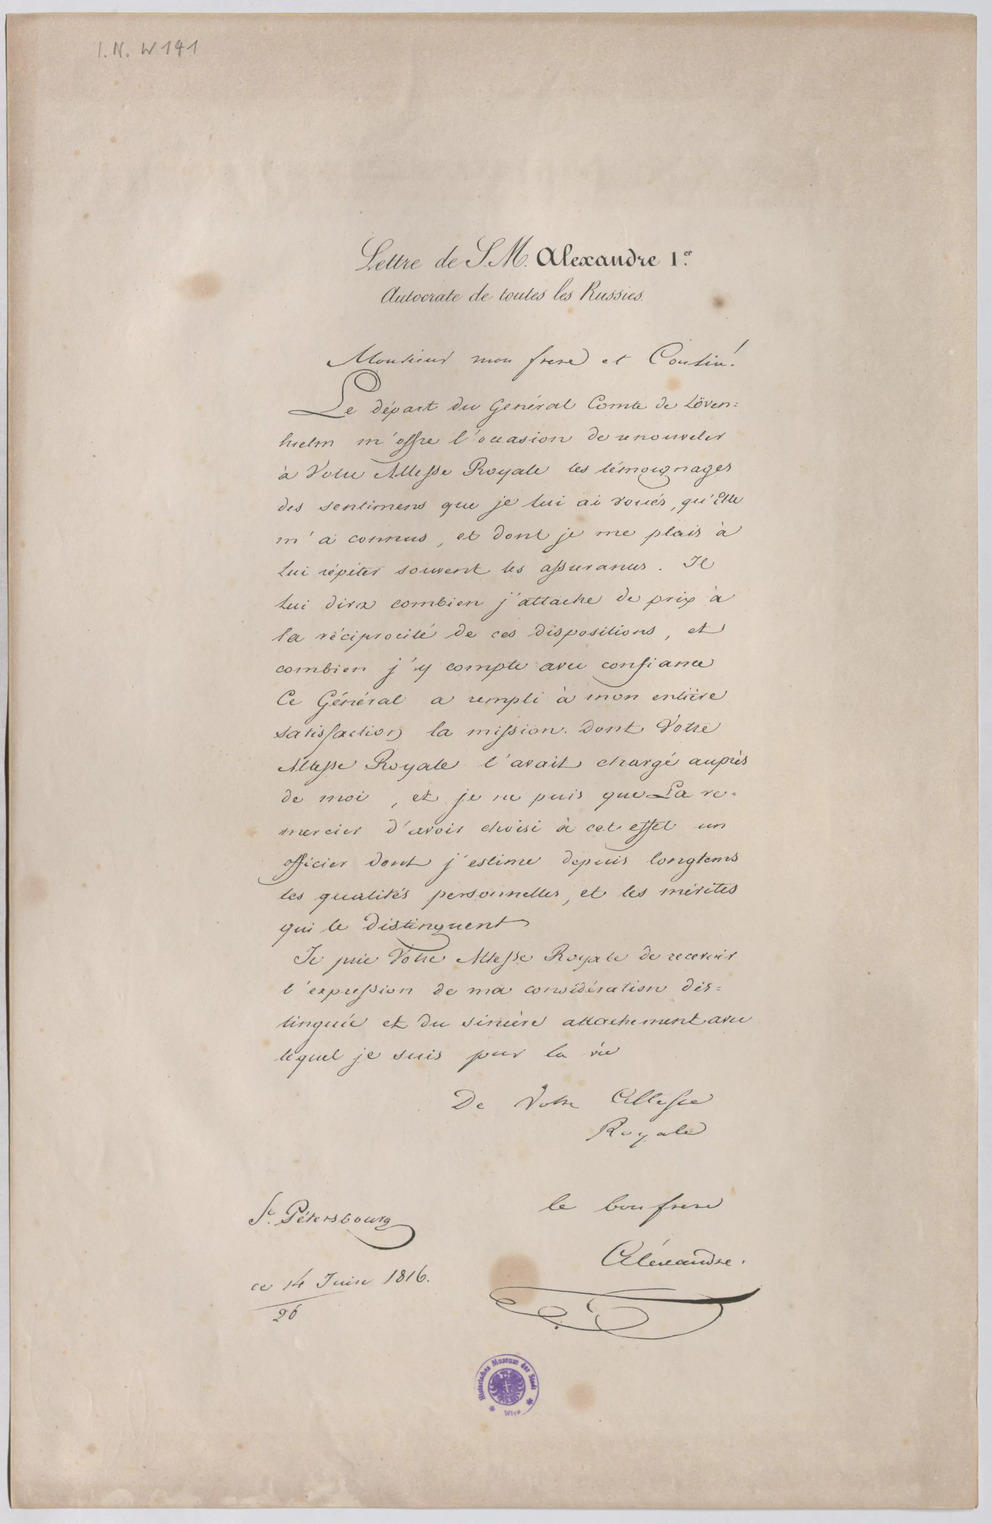 I.N. W 141
Lettre de S.M. Alexandre 1.er
Autocrate de toutes les Russies
Monsieur mon frere et Cousin!
Le départ du Général Comte de Löven=
hielm m'offre l'occasion de renouveler
à Votre Altesse Royale les témoignages
des sentimens que je lui ai voués, qu'Elle
m'a connus, et dont je me plais à
lui répéter souvent les assurances. Il
lui dira combien j'attache de prix à
la réciprocité de ces dispositions, et
combien j'y compte avec confiance
Ce Général a rempli à mon entière
satisfaction la mission dont Votre
Altesse Royale l'avait chargé auprès
de moi, et je ne puis que La re-
mercier d'avoir choisi à cet effet un
officier dont j'estime depuis longtems
les qualités personnelles, et les mérites
qui le distinguent
Je prie Votre Altesse Royale de recevoir
l'expression de ma considération dis=
tinguée et du sincère attachement avec
lequel je suis pour la vie
De Votre Altesse
Royale
le bon frere
Aléxandre.
St. Pétersbourg
ce 14 Juin 1816.
26
Historisches Museum der Stadt
Wien